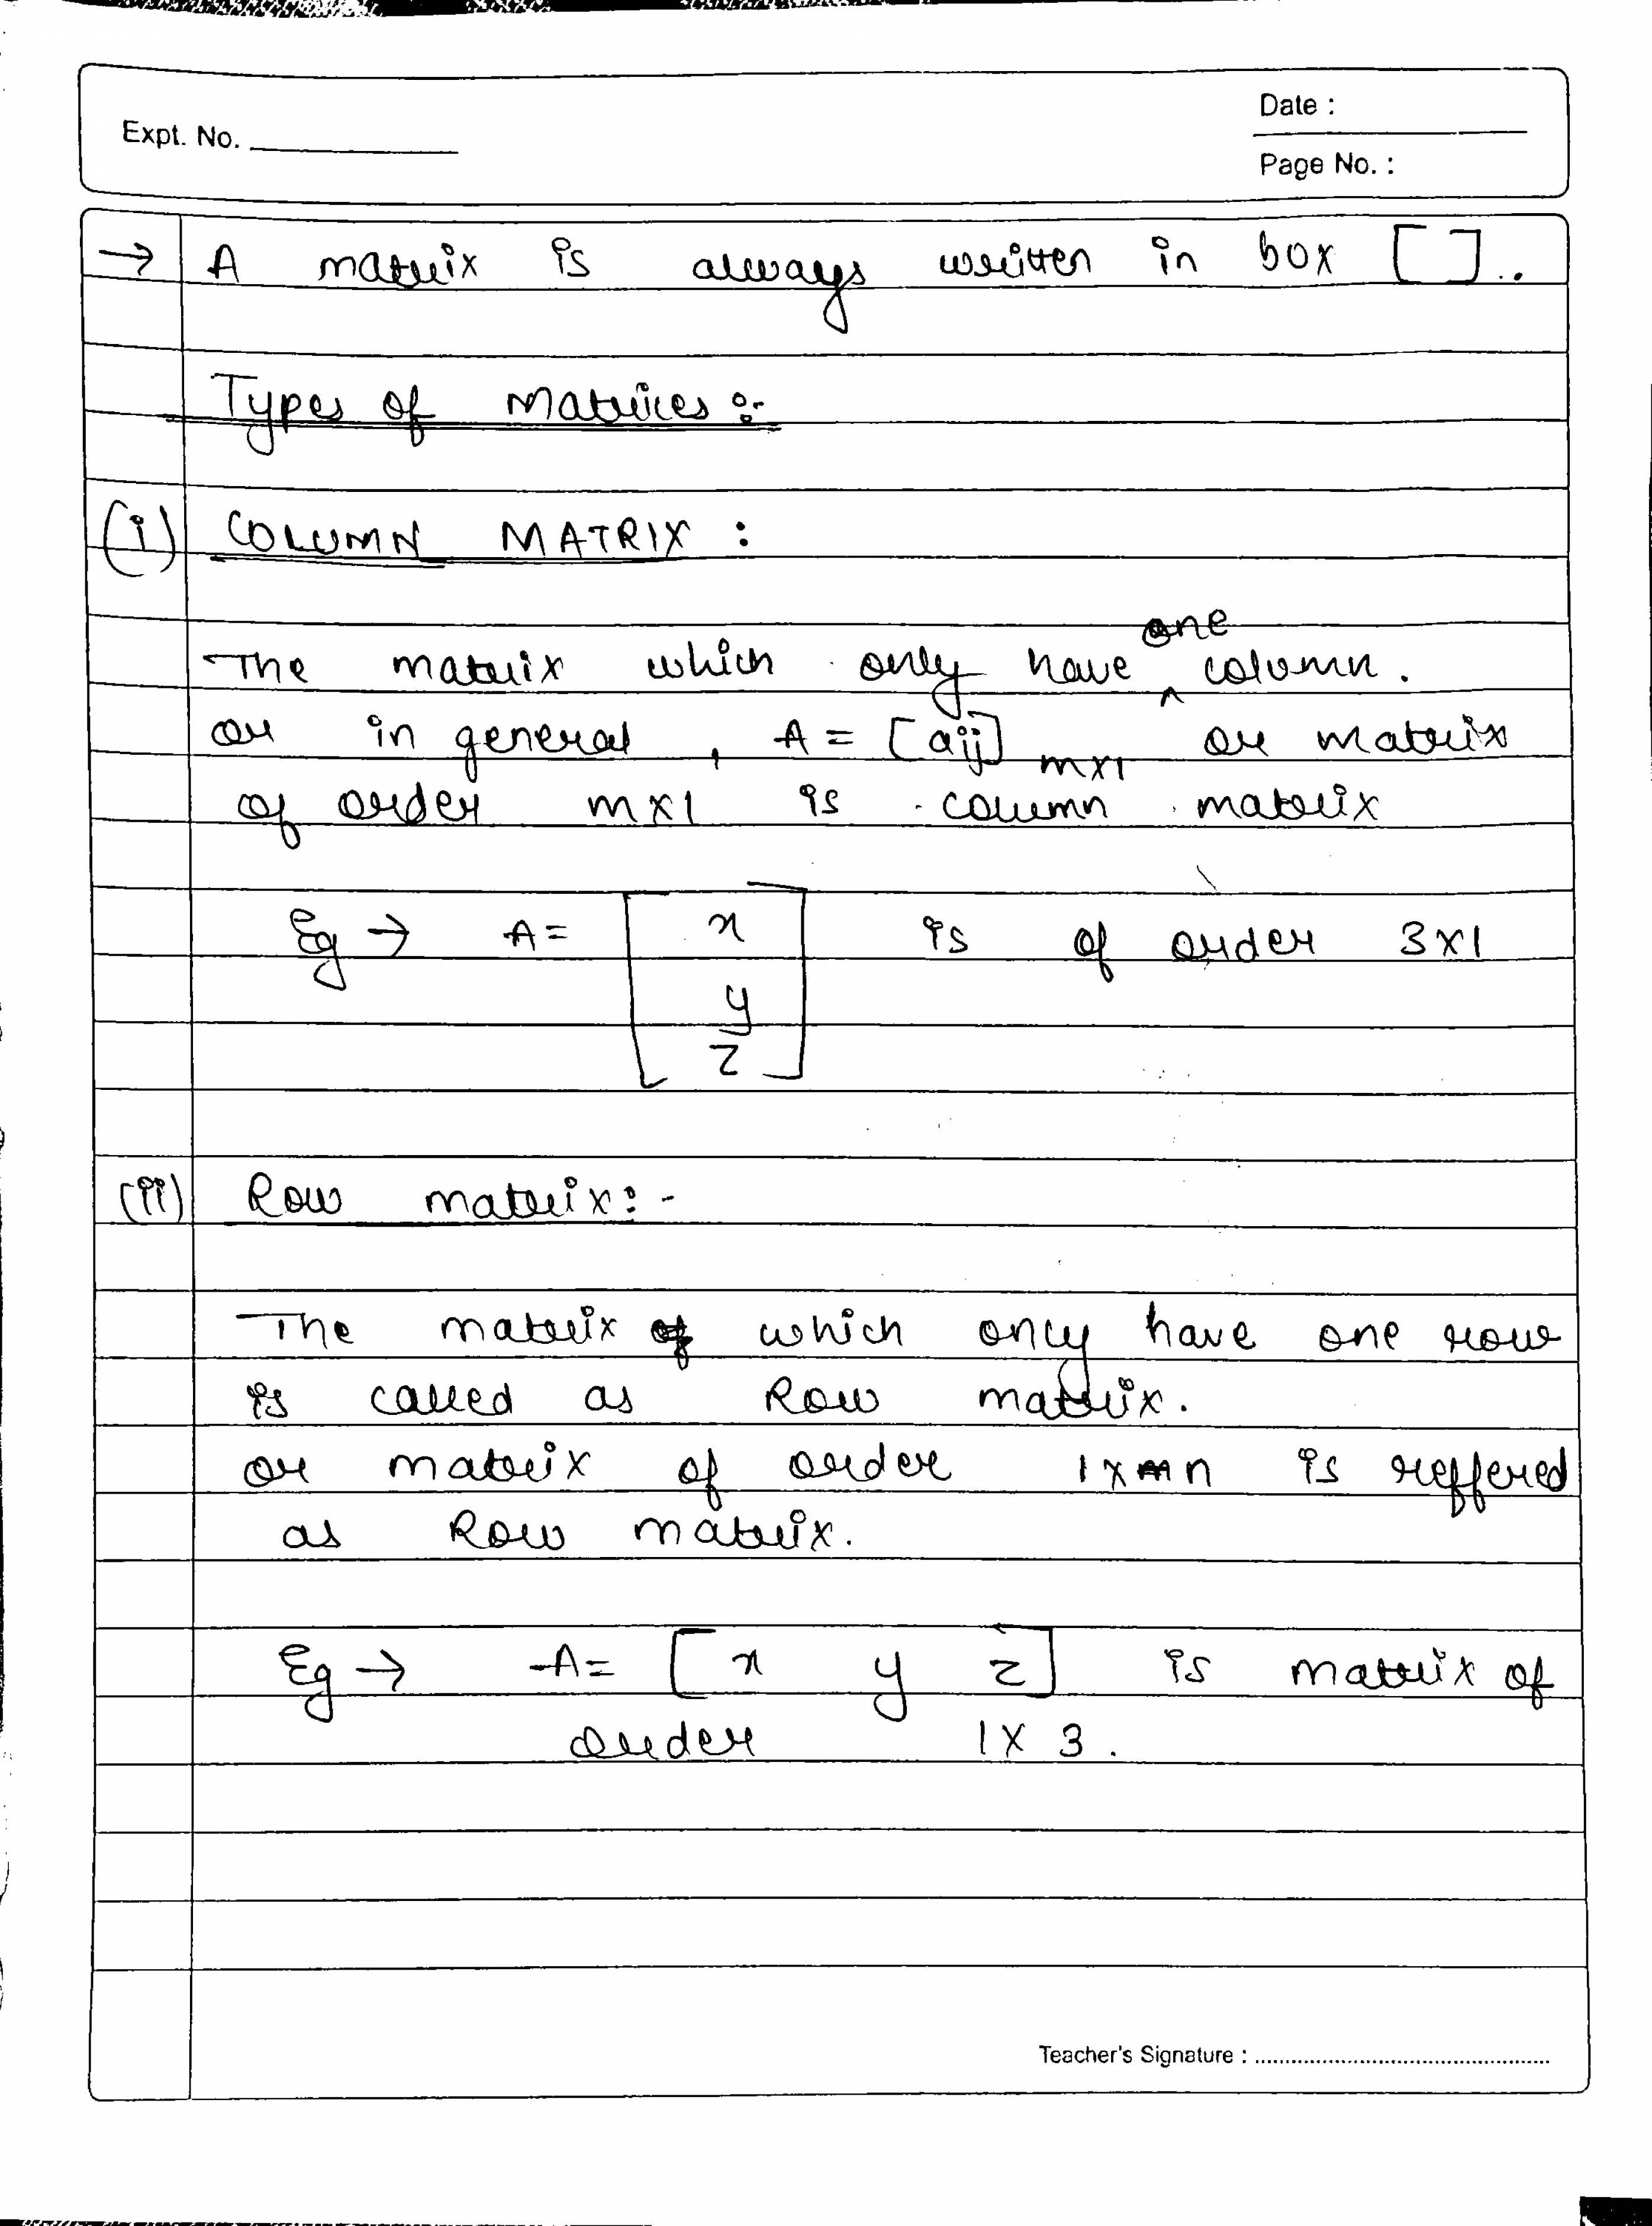 Expt. No.
Date :
Page No. :
→ A matrix is always written in box [ ]..
Types of Matrices :-
(i) COLUMN MATRIX :
The matrix which only have one column.
or in general, A = [aij] m×1 or matrix
of order m×1 is column matrix
Eg → A = [ x is of order 3×1
y
z ]
(ii) Row matrix :-
The matrix of which only have one row
is called as Row matrix.
or matrix of order 1×m n is reffered
as Row matrix.
Eg → A = [ x y z ] is matrix of
order 1×3.
Teacher's Signature :